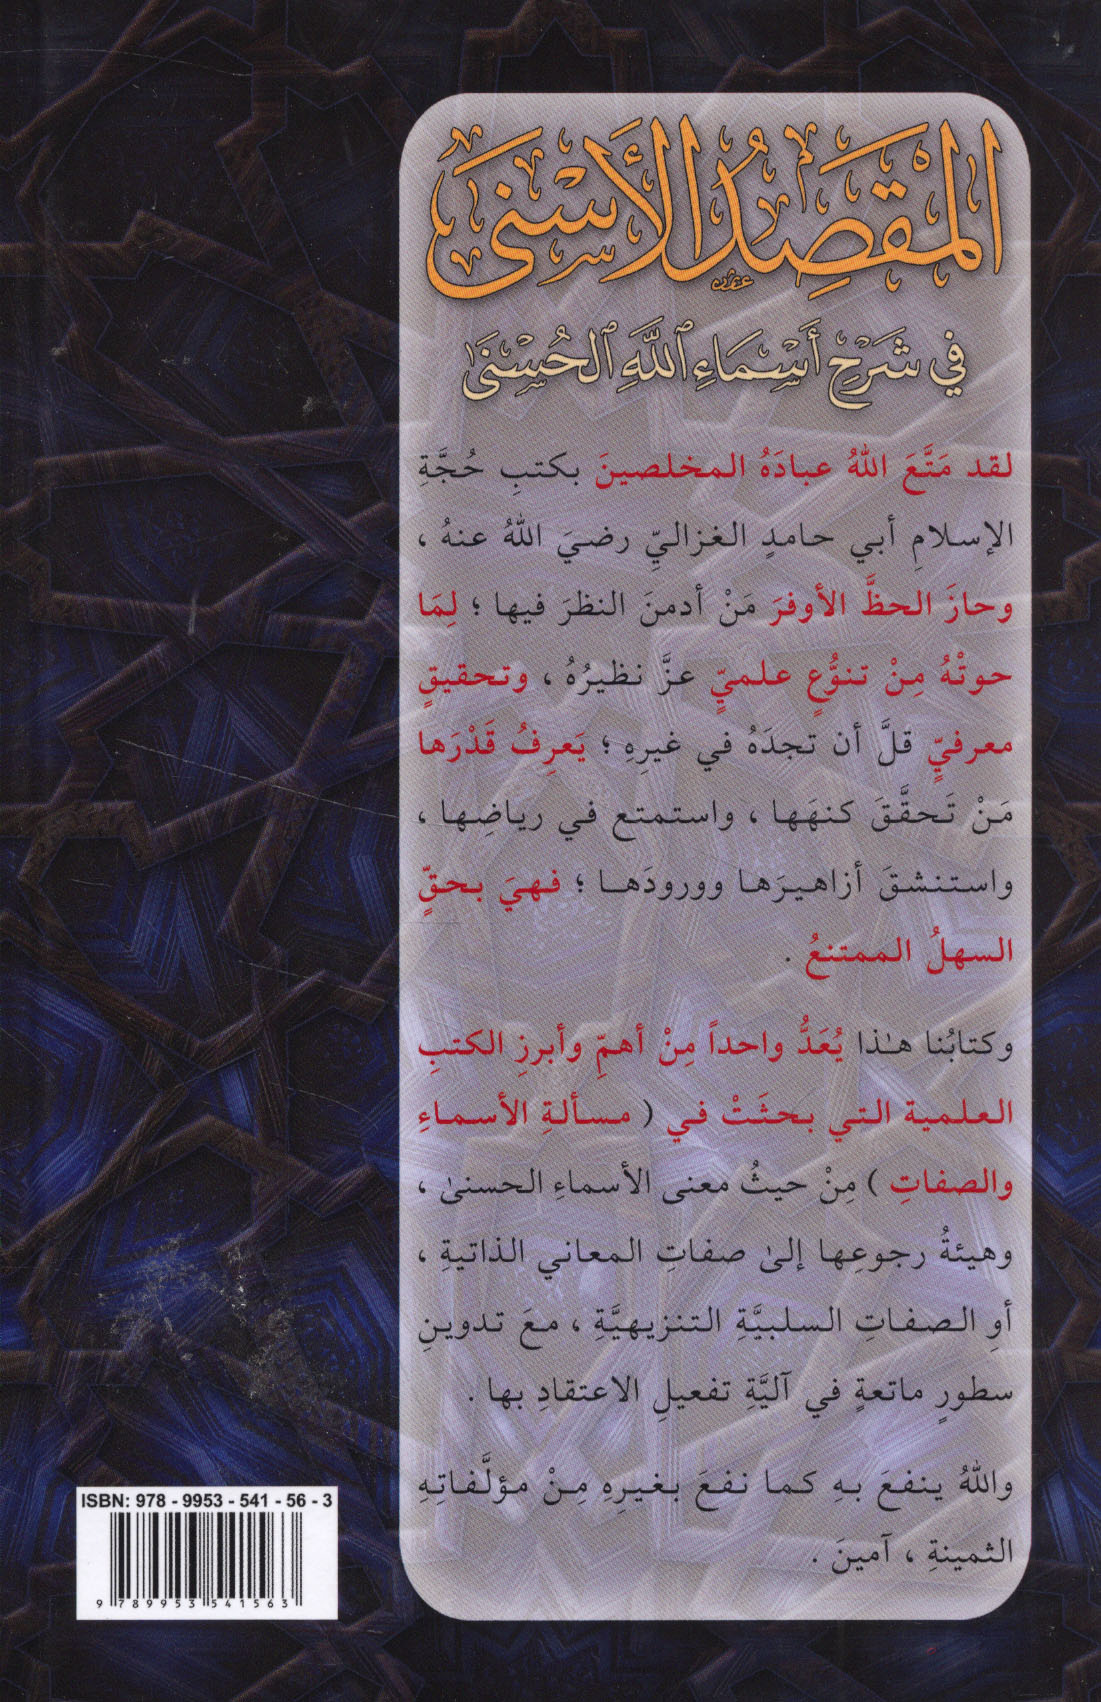 المَقصِدُ الأَسْنَى
في شَرْحِ أَسْمَاءِ ٱللَّهِ ٱلحُسْنَىٰ
لقد مَتَّعَ اللهُ عبادَهُ المخلصينَ بكتبِ حُجَّةِ
الإسلامِ أبي حامدٍ الغزاليِّ رضيَ اللهُ عنهُ ،
وحازَ الحظَّ الأوفرَ مَنْ أدمنَ النظرَ فيها ؛ لِمَا
حوتْهُ مِنْ تنوُّعٍ علميٍّ عزَّ نظيرُهُ ، وتحقيقٍ
معرفيٍّ قلَّ أن تجدَهُ في غيرِهِ ؛ يَعرِفُ قَدْرَها
مَنْ تَحقَّقَ كنهَها ، واستمتع في رياضِها ،
واستنشقَ أزاهيرَها وورودَها ؛ فهيَ بحقٍّ
السهلُ الممتنعُ .
وكتابُنا هـٰذا يُعَدُّ واحداً مِنْ أهمِّ وأبرزِ الكتبِ
العلمية التي بحثَتْ في ( مسألةِ الأسماءِ
والصفاتِ ) مِنْ حيثُ معنى الأسماءِ الحسنىٰ ،
وهيئةُ رجوعِها إلىٰ صفاتِ المعاني الذاتيةِ ،
أوِ الصفاتِ السلبيَّةِ التنزيهيَّةِ ، معَ تدوينِ
سطورٍ ماتعةٍ في آليَّةِ تفعيلِ الاعتقادِ بها .
واللهُ ينفعَ بهِ كما نفعَ بغيرِهِ مِنْ مؤلَّفاتِهِ
الثمينةِ ، آمينَ .
ISBN: 978 - 9953 - 541 - 56 - 3
9 789953 541563